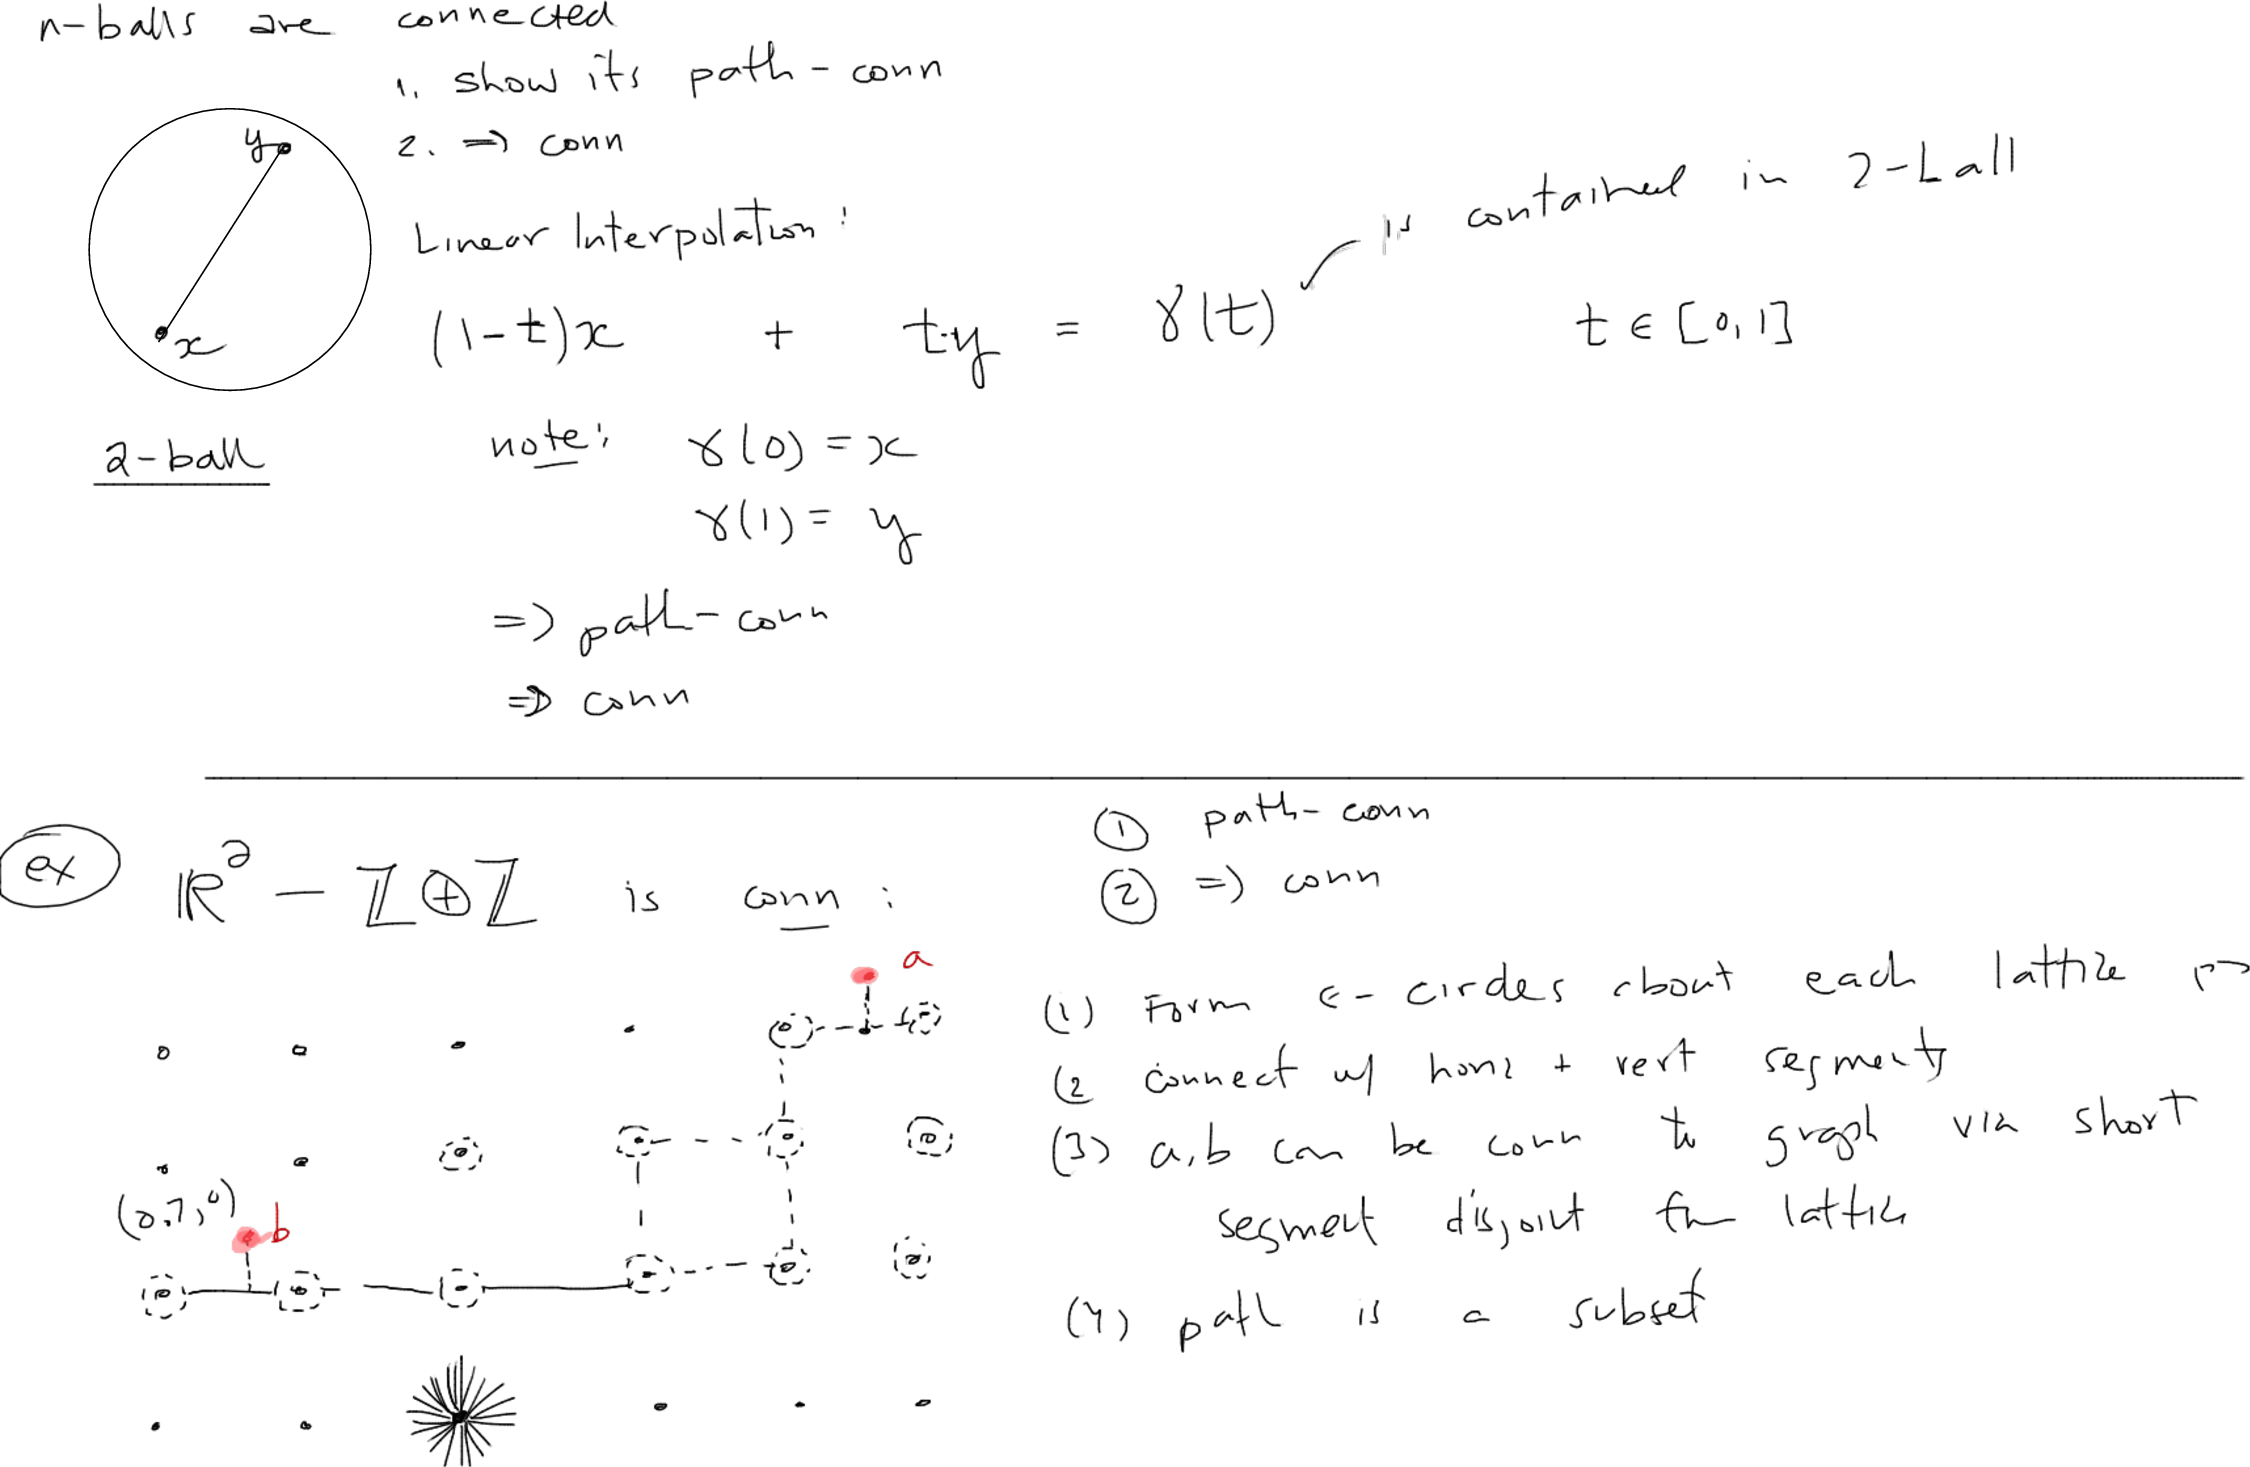 n-balls are connected
1. show its path-conn
2. ⇒ conn
y
x
2-ball
Linear Interpolation:
is contained in 2-ball
(1-t)x + t·y = γ(t) t ∈ [0,1]
note: γ(0) = x
γ(1) = y
=> path-conn
=> conn
ex ℝ² - ℤ⊕ℤ is conn :
① path-conn
② => conn
a
(0.7,0)
b
(1) Form ε-circles about each lattice
(2 connect w/ horiz + vert segments
(3) a,b can be conn to graph via short
segment disjoint fm lattice
(4) path is a subset